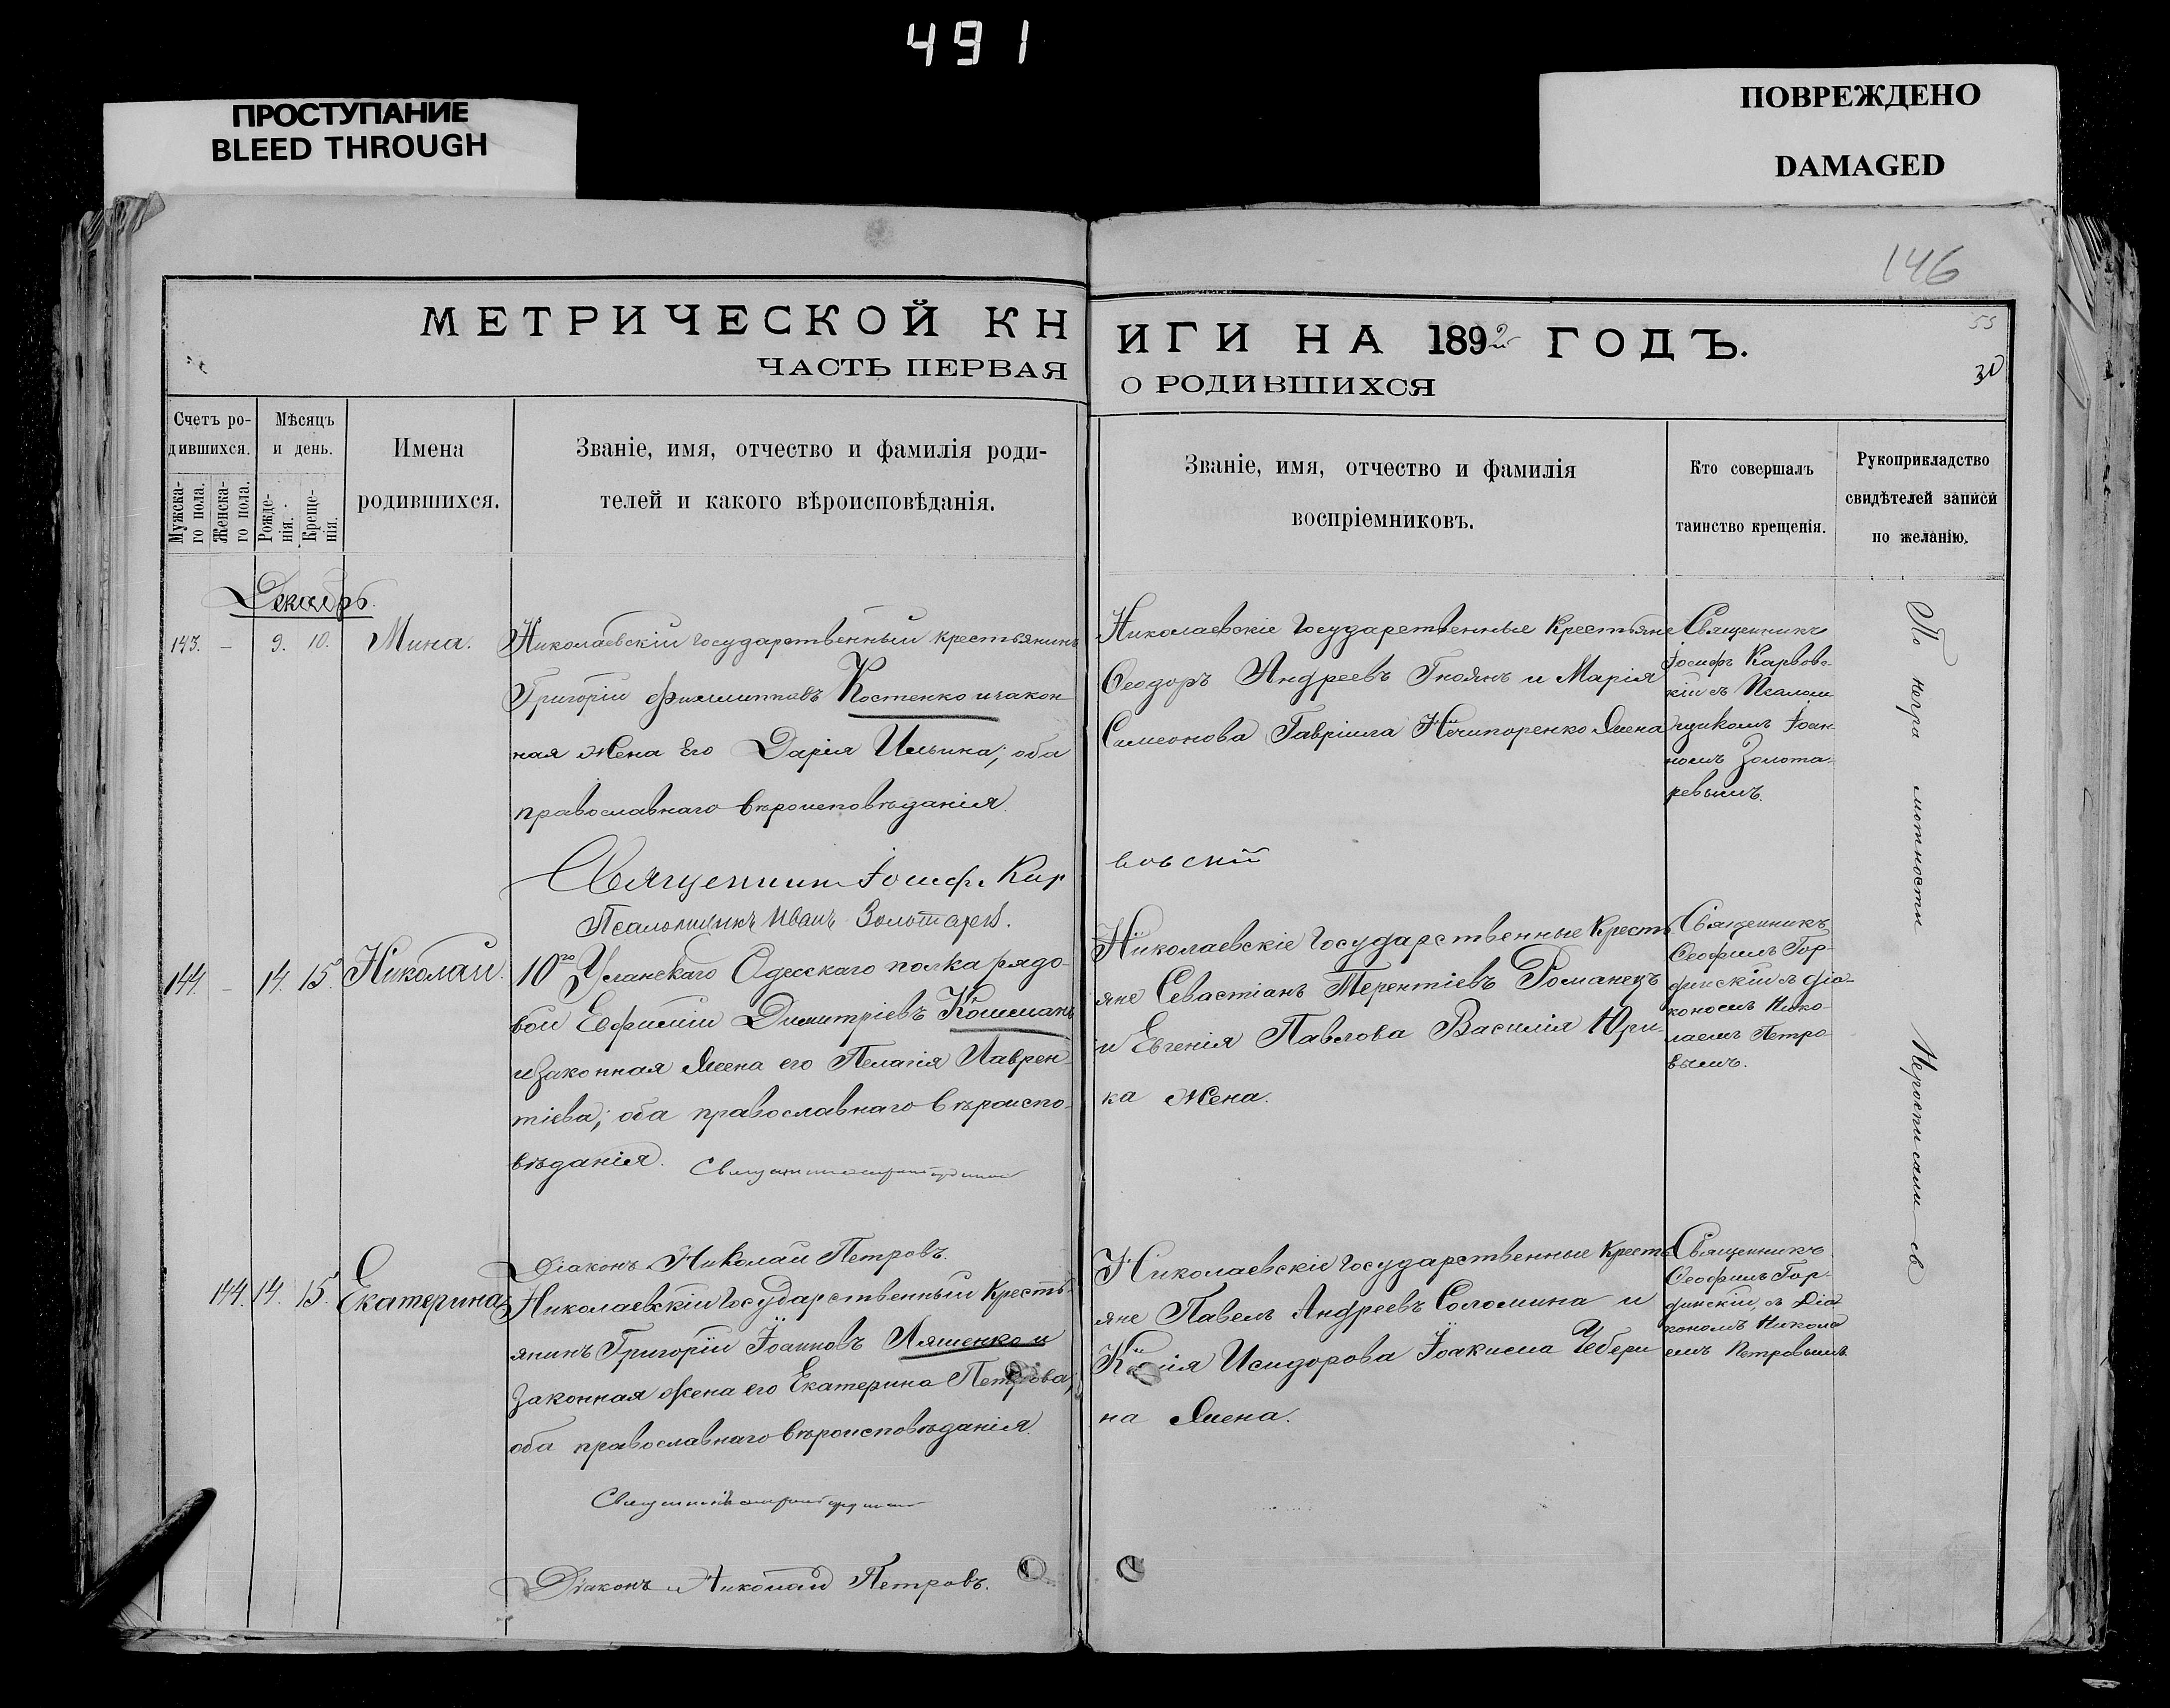 491
ПРОСТУПАНИЕ
BLEED THROUGH
ПОВРЕЖДЕНО
DAMAGED
146
МЕТРИЧЕСКОЙ КНИГИ НА 1892 ГОДЪ.
55
30
ЧАСТЬ ПЕРВАЯ О РОДИВШИХСЯ
Счетъ ро-
дившихся.
Мужска-
го пола.
Женска-
го пола.
Мѣсяцъ
и день.
Рожде-
нія.
Креще-
нія.
Имена
родившихся.
Званіе, имя, отчество и фамилія роди-
телей и какого вѣроисповѣданія.
Званіе, имя, отчество и фамилія
воспріемниковъ.
Кто совершалъ
таинство крещенія.
Рукоприкладство
свидѣтелей записи
по желанію.
Декабрь.
143. – 9. 10. Мина.
Николаевскій государственный крестьянинъ
Григорій Филиповъ Костенко и закон
ная жена его Дарія Ильина; оба
православнаго вѣроисповѣданія.
Николаевскіе государственные крестьяне
Ѳеодоръ Андреевъ Гноянъ и Марія
Симеонова Гавріила Нечипоренко жена
Священникъ
Іосифъ Карвов-
скій съ Псалом
щикомъ Іоан-
номъ Золота-
ревымъ.
Священник Іосиф Кар
вовский
Псаломщикъ Иванъ Золотарев.
144. – 14. 15. Николай.
10го Уланскаго Одесскаго полка рядо-
вой Евфимій Димитріевъ Кошманъ
и законная жена его Пелагія Лаврен
тіева; оба православнаго вѣроиспо-
вѣданія.
Николаевскіе государственные кресть
яне Севастіанъ Терентіевъ Романецъ
и Евгенія Павлова Василія Юри-
ка жена.
Священникъ
Ѳеофилъ Гор-
динскій съ діа-
кономъ Нико-
лаемъ Петро-
вымъ.
Діаконъ Николай Петровъ.
144. 14. 15. Екатерина
Николаевскій государственный кресть-
янинъ Григорій Іоанновъ Ляшенко и
законная жена его Екатерина Петрова;
оба православнаго вѣроисповѣданія.
Николаевскіе государственные кресть
яне Павелъ Андреевъ Соломина и
Исидорова Іоакима Чебери
на жена.
Священникъ
Ѳеофилъ Гор-
динскій, съ Діа
кономъ Никола
емъ Петровымъ
Діаконъ Николай Петровъ.
По